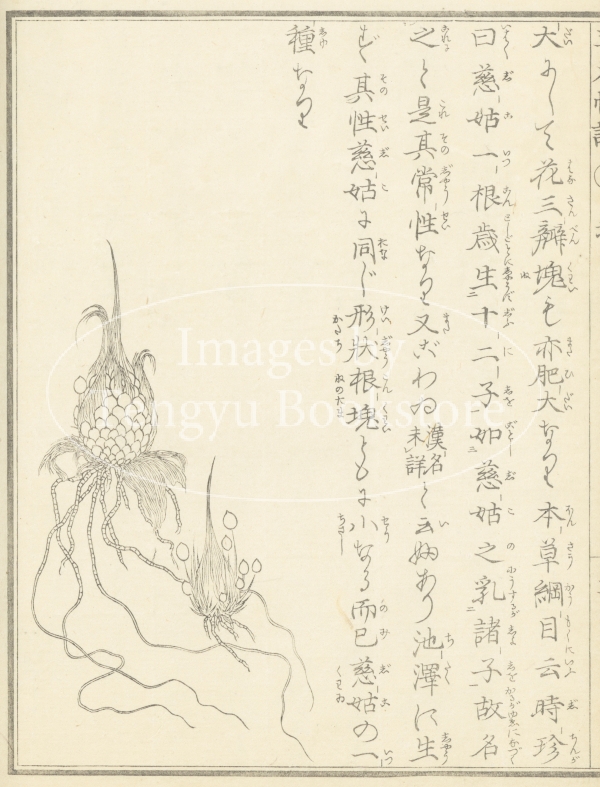 大にして花三瓣塊も亦肥大なり本草綱目云時珍
曰慈姑一根歳生十二子如慈姑之乳諸子故名
之と是其常性なり又ごわゐ漢名未詳と云物あり池澤に生
ず其性慈姑に同じ形狀根塊ともに小なる而已慈姑の一
種なり
Images by
Tengyu Bookstore